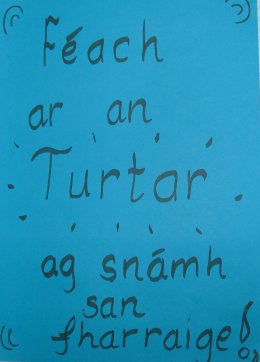 Féach
ar an
Turtar
ag snámh
san
fharraige!